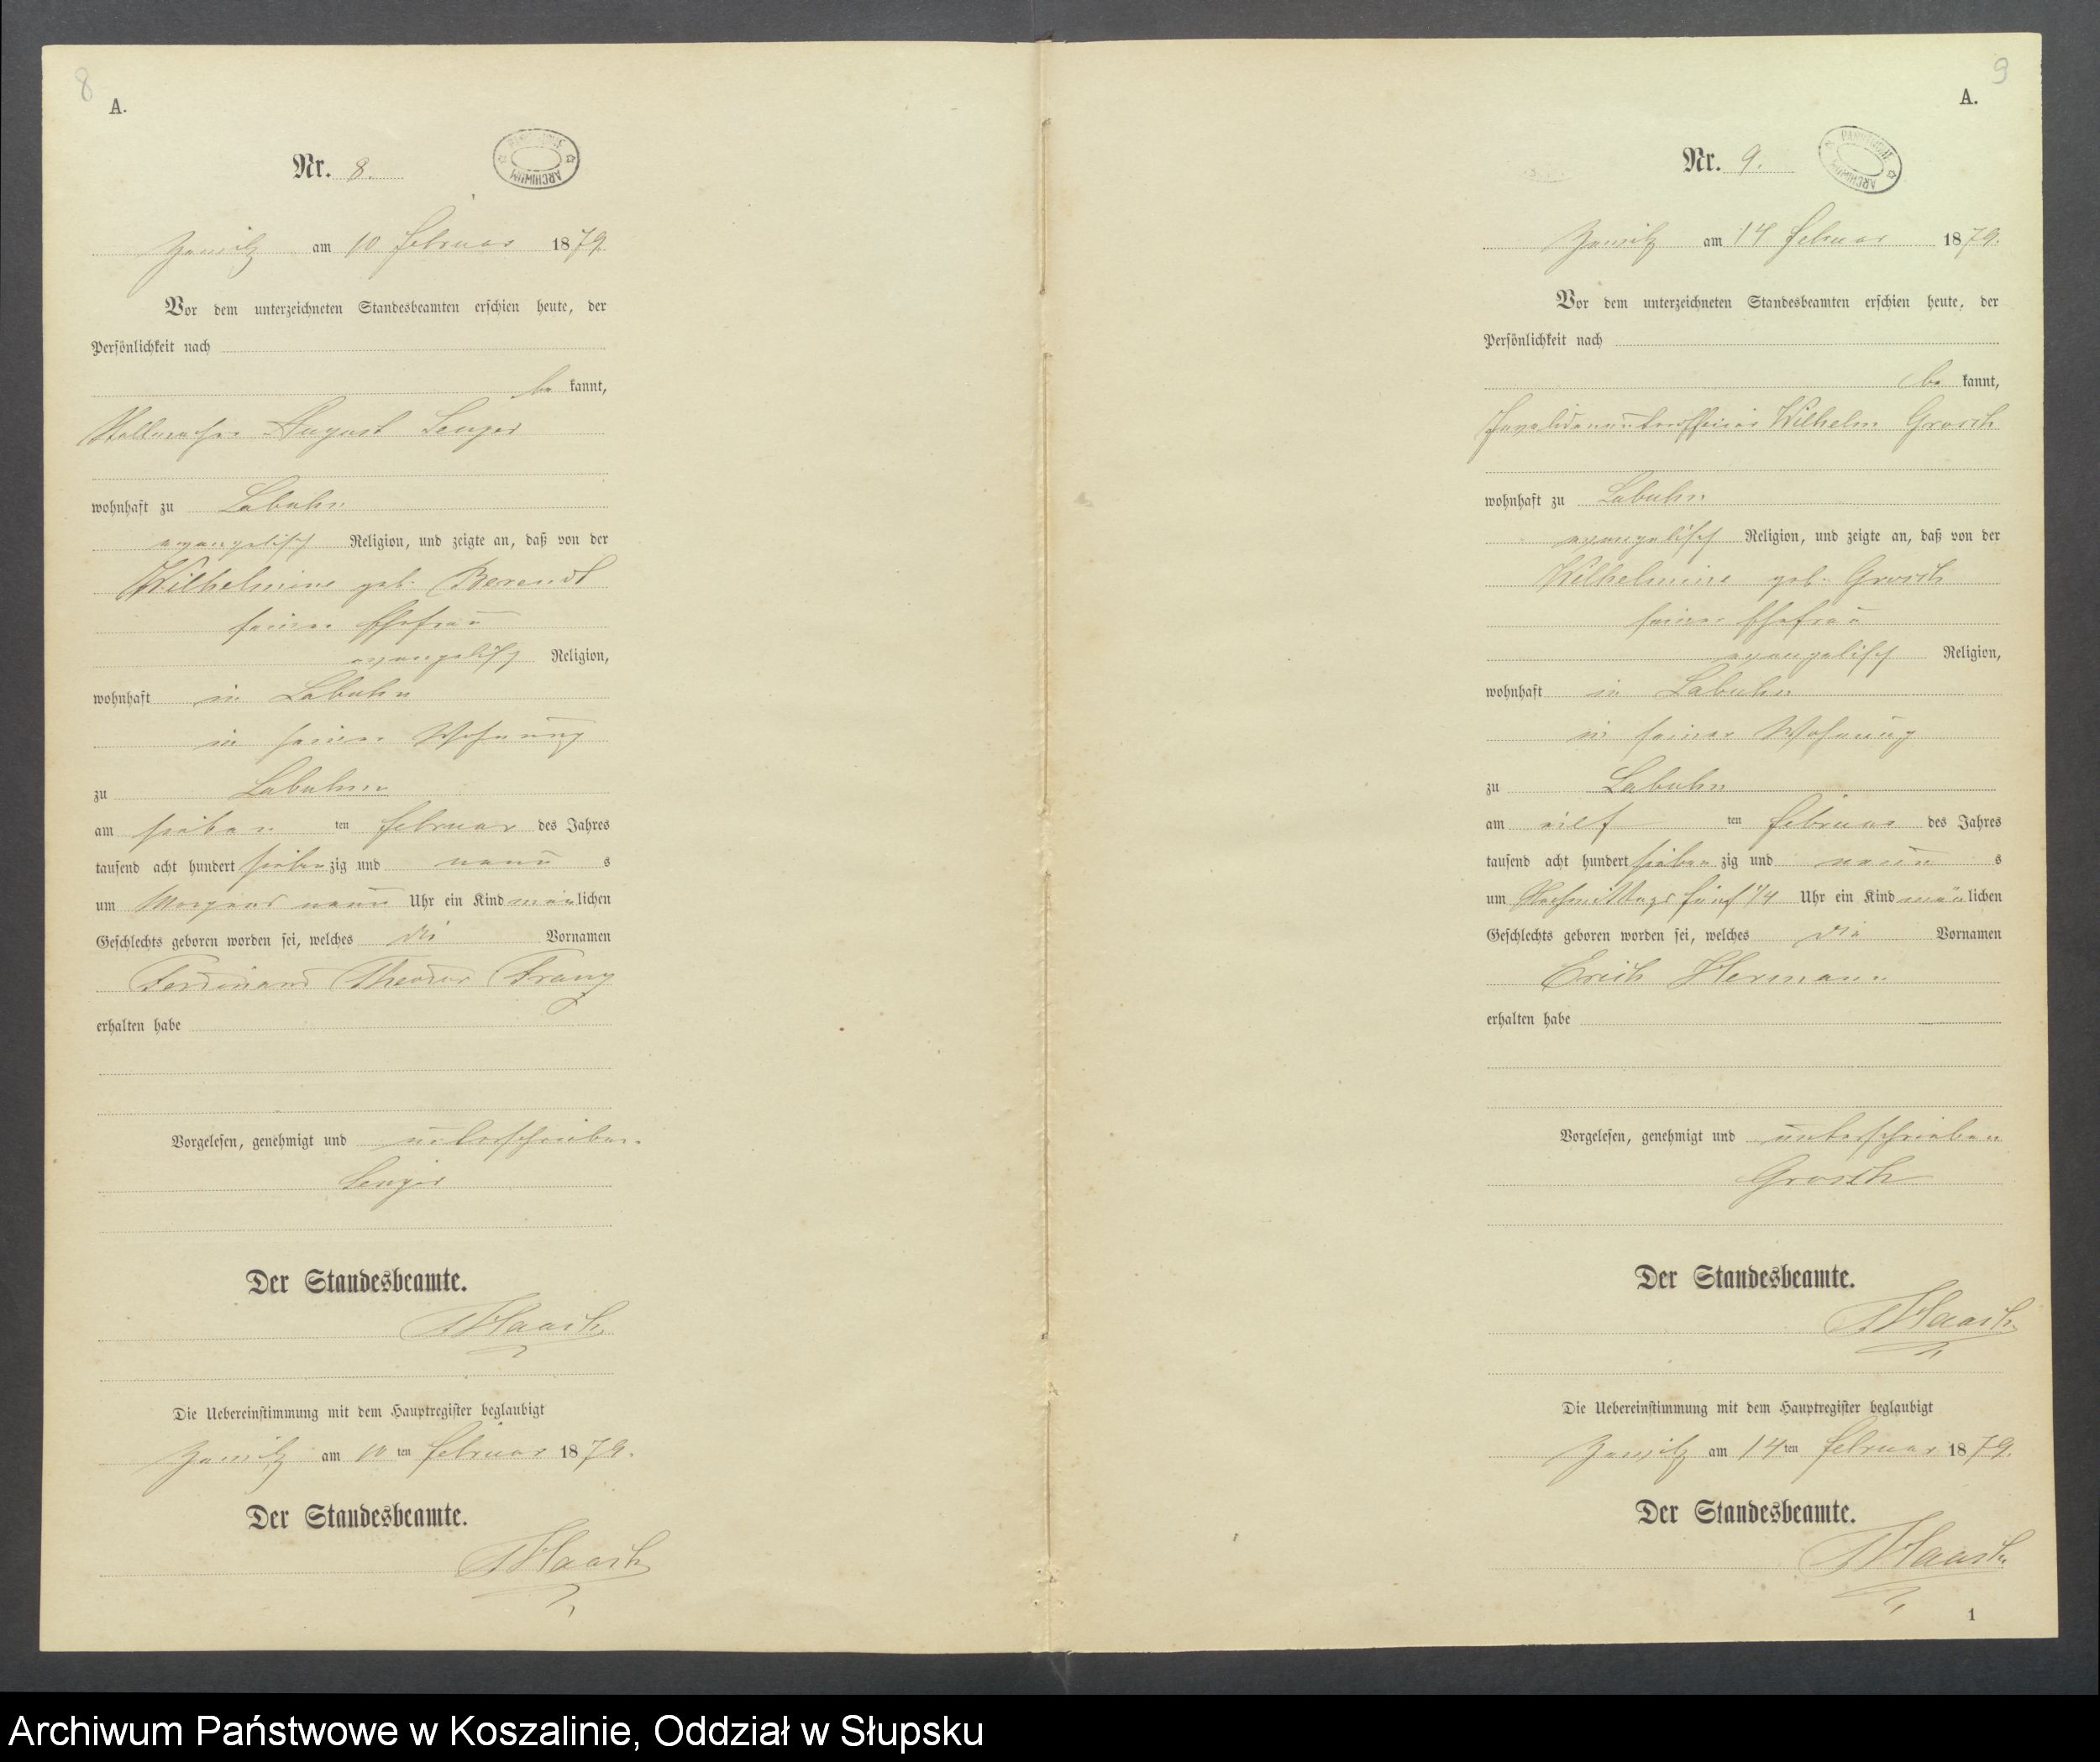 8
A.
Nr. 8.
ARCHIWUM
Zewitz am 10 Februar 1879
Vor dem unterzeichneten Standesbeamten erschien heute, der
Persönlichkeit nach
be kannt,
Stellmacher August Senger
wohnhaft zu Labuhn
evangelisch Religion, und zeigte an, daß von der
Wilhelmine geb. Berendt
seiner Ehefrau
evangelisch Religion,
wohnhaft in Labuhn
in seiner Wohnung
zu Labuhn
am sieben ten Februar des Jahres
tausend acht hundert sieben zig und neun s
um Morgens neun Uhr ein Kind män lichen
Geschlechts geboren worden sei, welches die Vornamen
Ferdinand Theodor Franz
erhalten habe
Vorgelesen, genehmigt und unterschrieben.
Senger
Der Standesbeamte.
Haasch
Die Uebereinstimmung mit dem Hauptregister beglaubigt
Zewitz am 10 ten Februar 1879.
Der Standesbeamte.
Haasch
9
A.
Nr. 9.
ARCHIWUM
Zewitz am 14 Februar 1879.
Vor dem unterzeichneten Standesbeamten erschien heute, der
Persönlichkeit nach
be kannt,
Invalidenunterofficier Wilhelm Grosch
wohnhaft zu Labuhn
evangelisch Religion, und zeigte an, daß von der
Wilhelmine geb. Grosch
seiner Ehefrau
evangelisch Religion,
wohnhaft in Labuhn
in seiner Wohnung
zu Labuhn
am eilf ten Februar des Jahres
tausend acht hundert sieben zig und neun s
um Nachmittags fünf 1/4 Uhr ein Kind män lichen
Geschlechts geboren worden sei, welches die Vornamen
Erich Hermann
erhalten habe
Vorgelesen, genehmigt und unterschrieben
Grosch
Der Standesbeamte.
Haasch
Die Uebereinstimmung mit dem Hauptregister beglaubigt
Zewitz am 14 ten Februar 1879.
Der Standesbeamte.
Haasch
1
Archiwum Państwowe w Koszalinie, Oddział w Słupsku